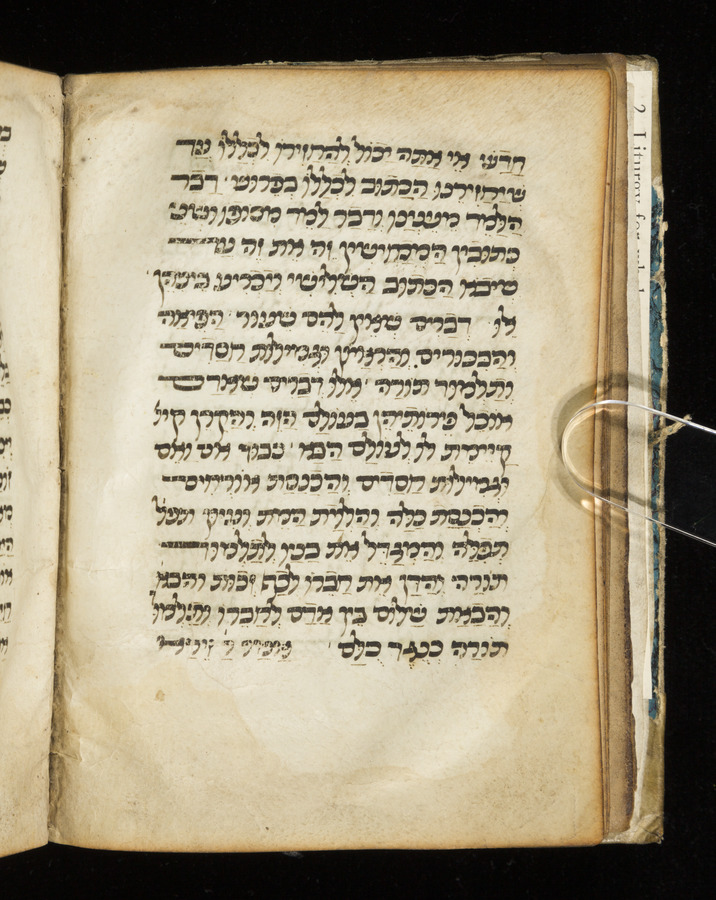 חדש אי אתה יכול להחזירו לכללו עד
שיחזירנו הכתוב לכללו בפרוש דבר
הלמד מענינו ודבר למד מסופו ושני
כתובין המכחישין זה את זה עד
שיבא הכתוב השלישי ויכריע ביניהן
אלו דברים שאין להם שעור הפיאה
והבכורים והראיון וגמילות חסדים
ותלמוד תורה אלו דברים שאדם
אוכל פירותיהן בעולם הזה והקרן
קיימת לו לעולם הבא כבוד אב ואם
וגמילות חסדים והכנסת אורחים
והכנסת כלה והלוית המת ועיון
תפלה
תורה והדן את חברו לכף זכות
והבאת שלום בין אדם לחברו ותלמוד
תורה כנגד כלם
2 Liturgy for